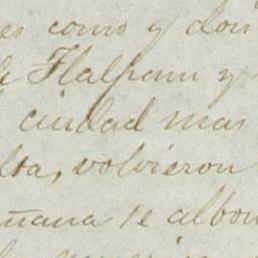 es como y don
de Tlalpam y
ciudad mas
lta, volvieron
ñana se albo